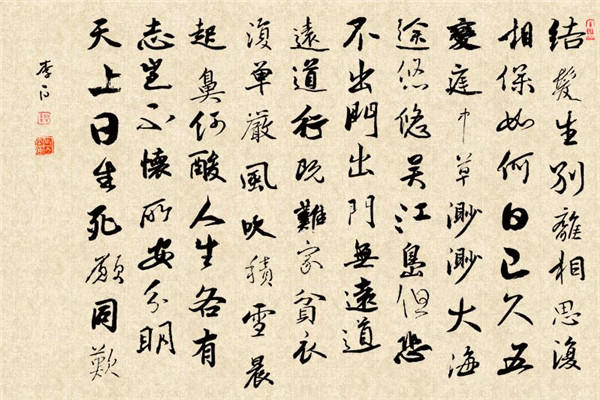 結髮生別離相思復
相保如何日已久五
變庭中草渺渺大海
途悠悠吴江島但悲
不出門出門無遠道
遠道行既難家貧衣
復單嚴風吹積雪晨
起鼻何酸人生各有
志豈不懷所安分明
天上日生死願同歡
李